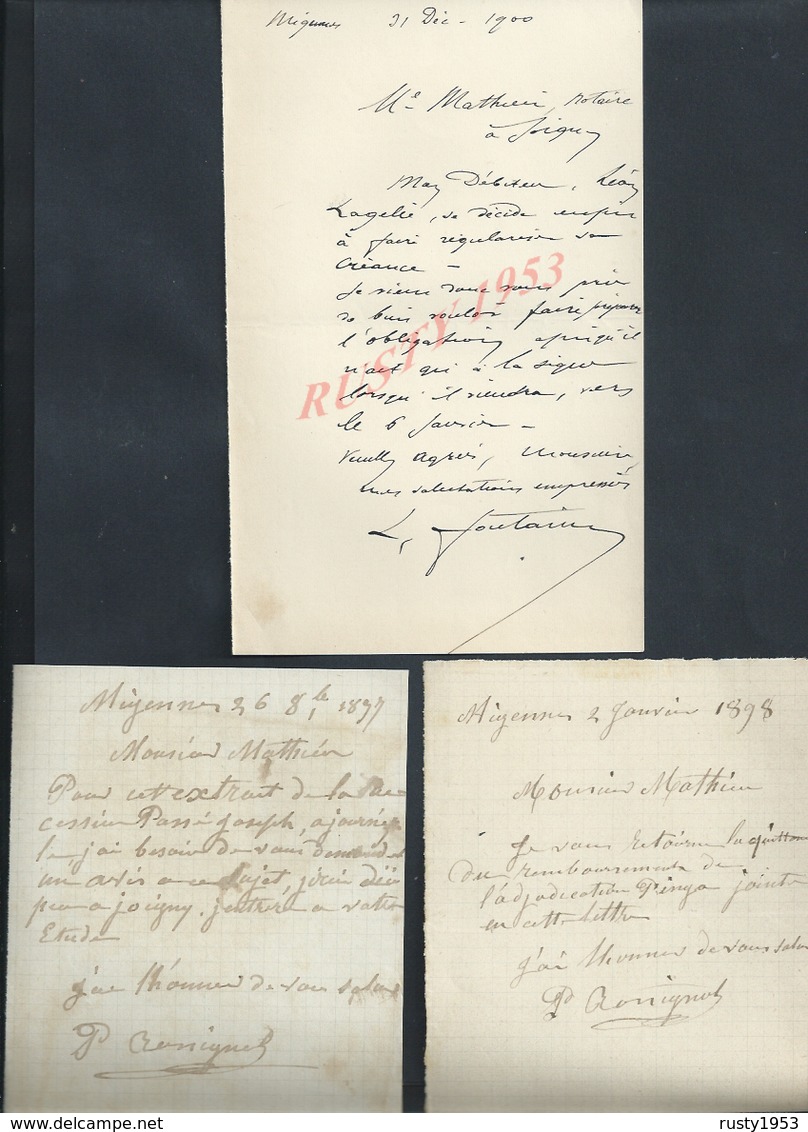 Migennes 31 Déc - 1900
Me Mathieu, notaire
à Joigny
Mon Débiteur, Léon
Lagelié, se décide enfin
à faire régulariser sa
créance -
Je viens donc vous prier
de bien vouloir faire préparer
l'obligation afin qu'il
n'ait qu'à la signer
lorsqu'il viendra, vers
le 6 Janvier -
Veuillez agréer, Monsieur
mes salutations empressées
L. Fontaine
RUSTY 1953
Migennes 26 8bre 1897
Monsieur Mathieu
Pour cet extrait de la Suc
cession Passé Joseph, ajourné
le j'ai besoin de vous demander
un avis a ce sujet, j'irai
peu a joigny. j'entrere a votre
Etude
j'ai l'honneur de vous saluer
P Rossignol
Migennes 2 Janvier 1898
Monsieur Mathieu
Je vous retourne la quittance
du remboursement de
l'adjudication jointe
en cette lettre
j'ai l'honneur de vous saluer
P Rossignol
www.delcampe.net
rusty1953